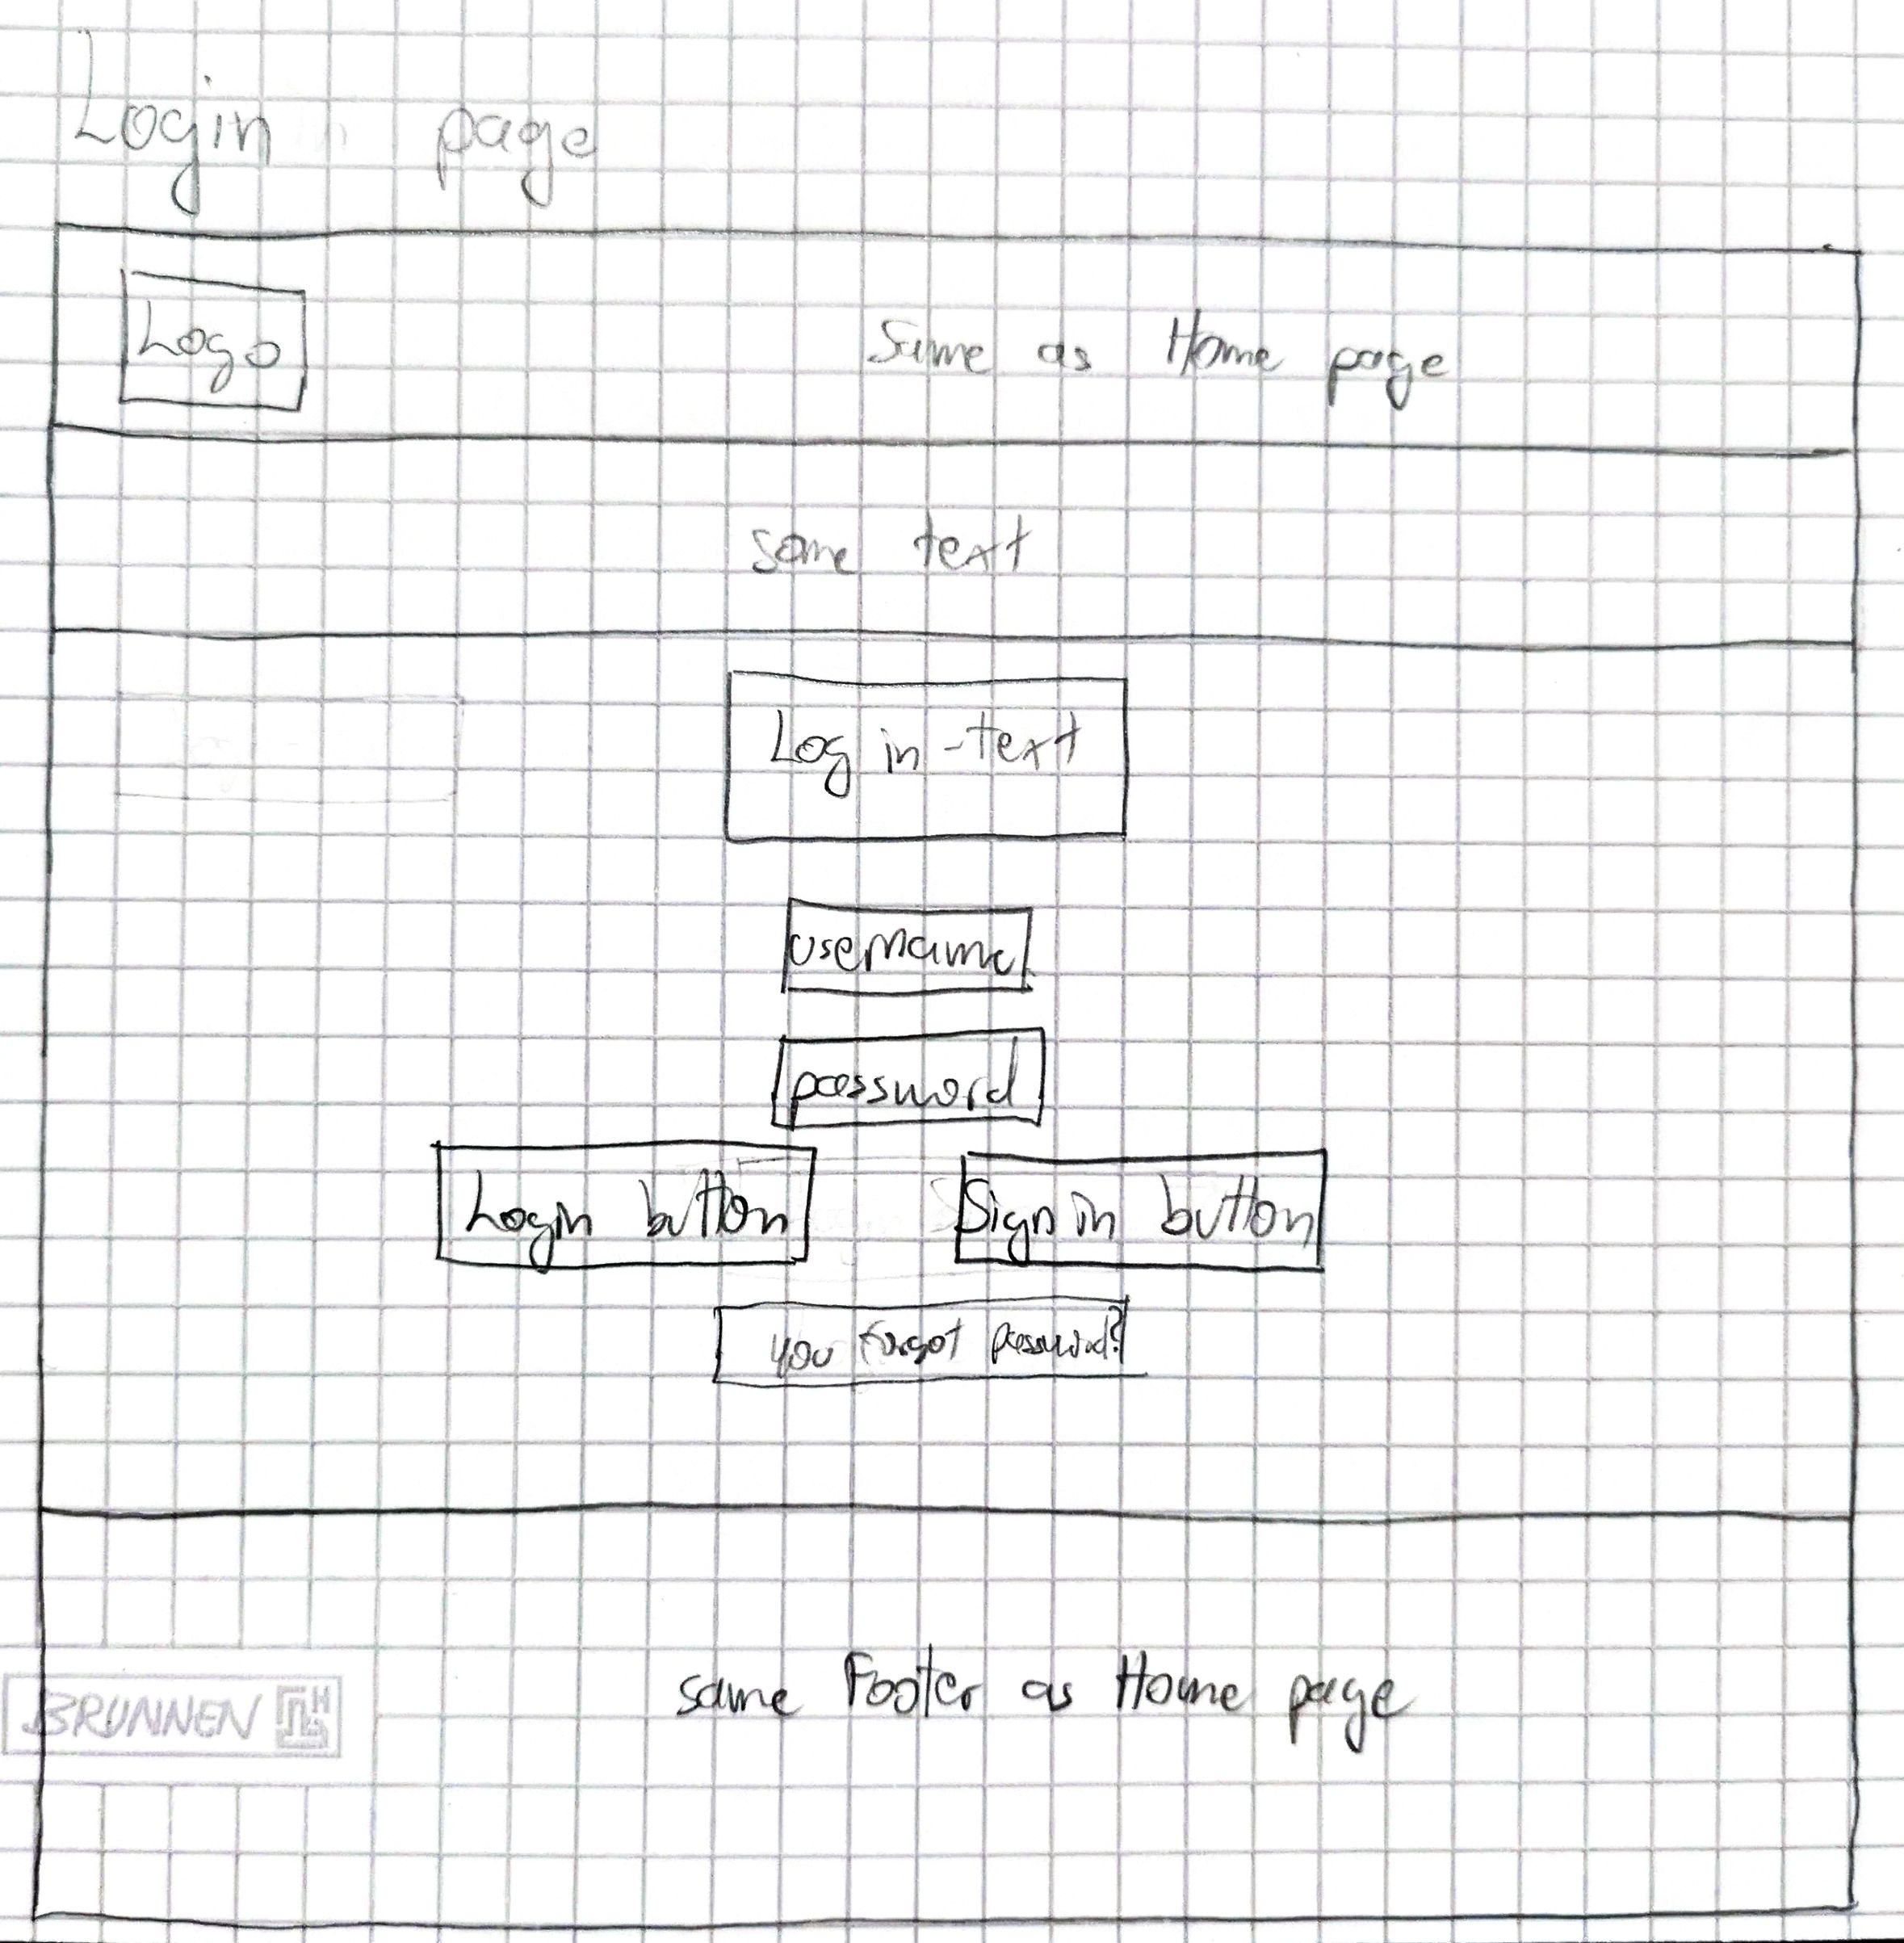 Login page
Logo
Same as Home page
some text
Log in -text
username
password
Login button
Sign in button
you forgot password?
same Footer as Home page
BRUNNEN